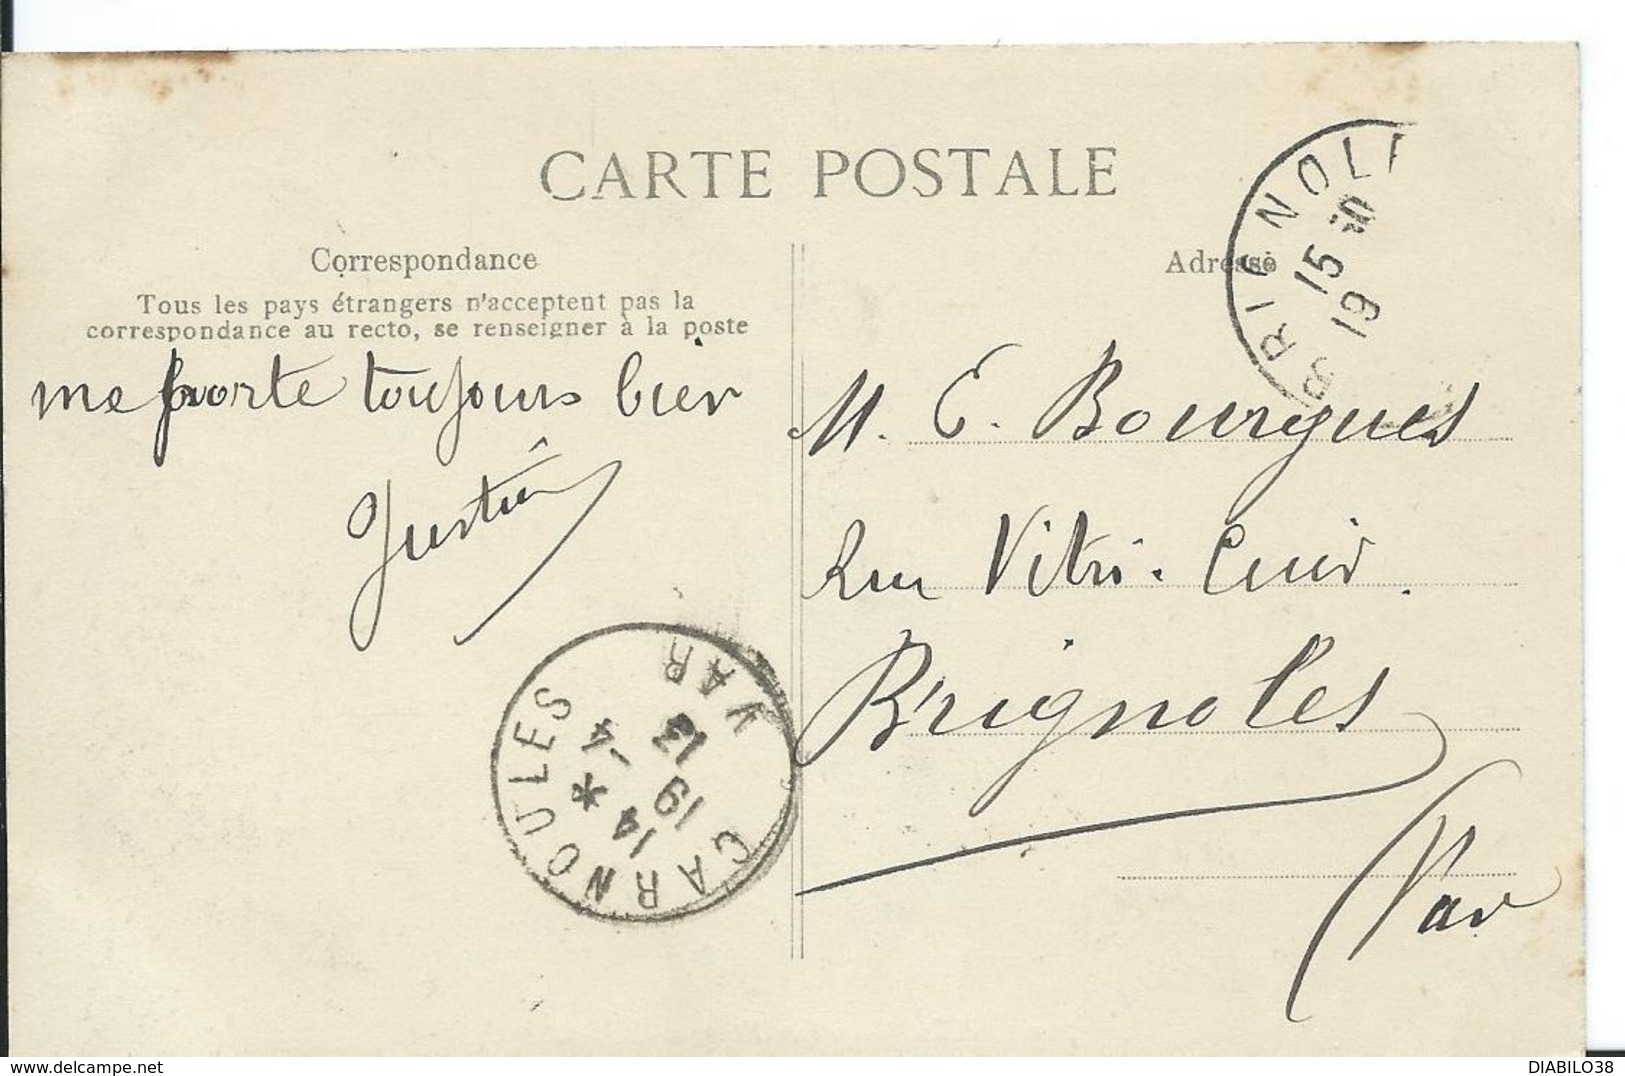 CARTE POSTALE
Correspondance
Tous les pays étrangers n'acceptent pas la
correspondance au recto, se renseigner à la poste
me porte toujours bien
Justin
CARNOULES
VAR
14 * -4
19 13
Adresse
BRIGNOLE
15
19
M. E. Bourgues
Rue Vitri. Cuir.
Brignoles
(Var
DIABILO38